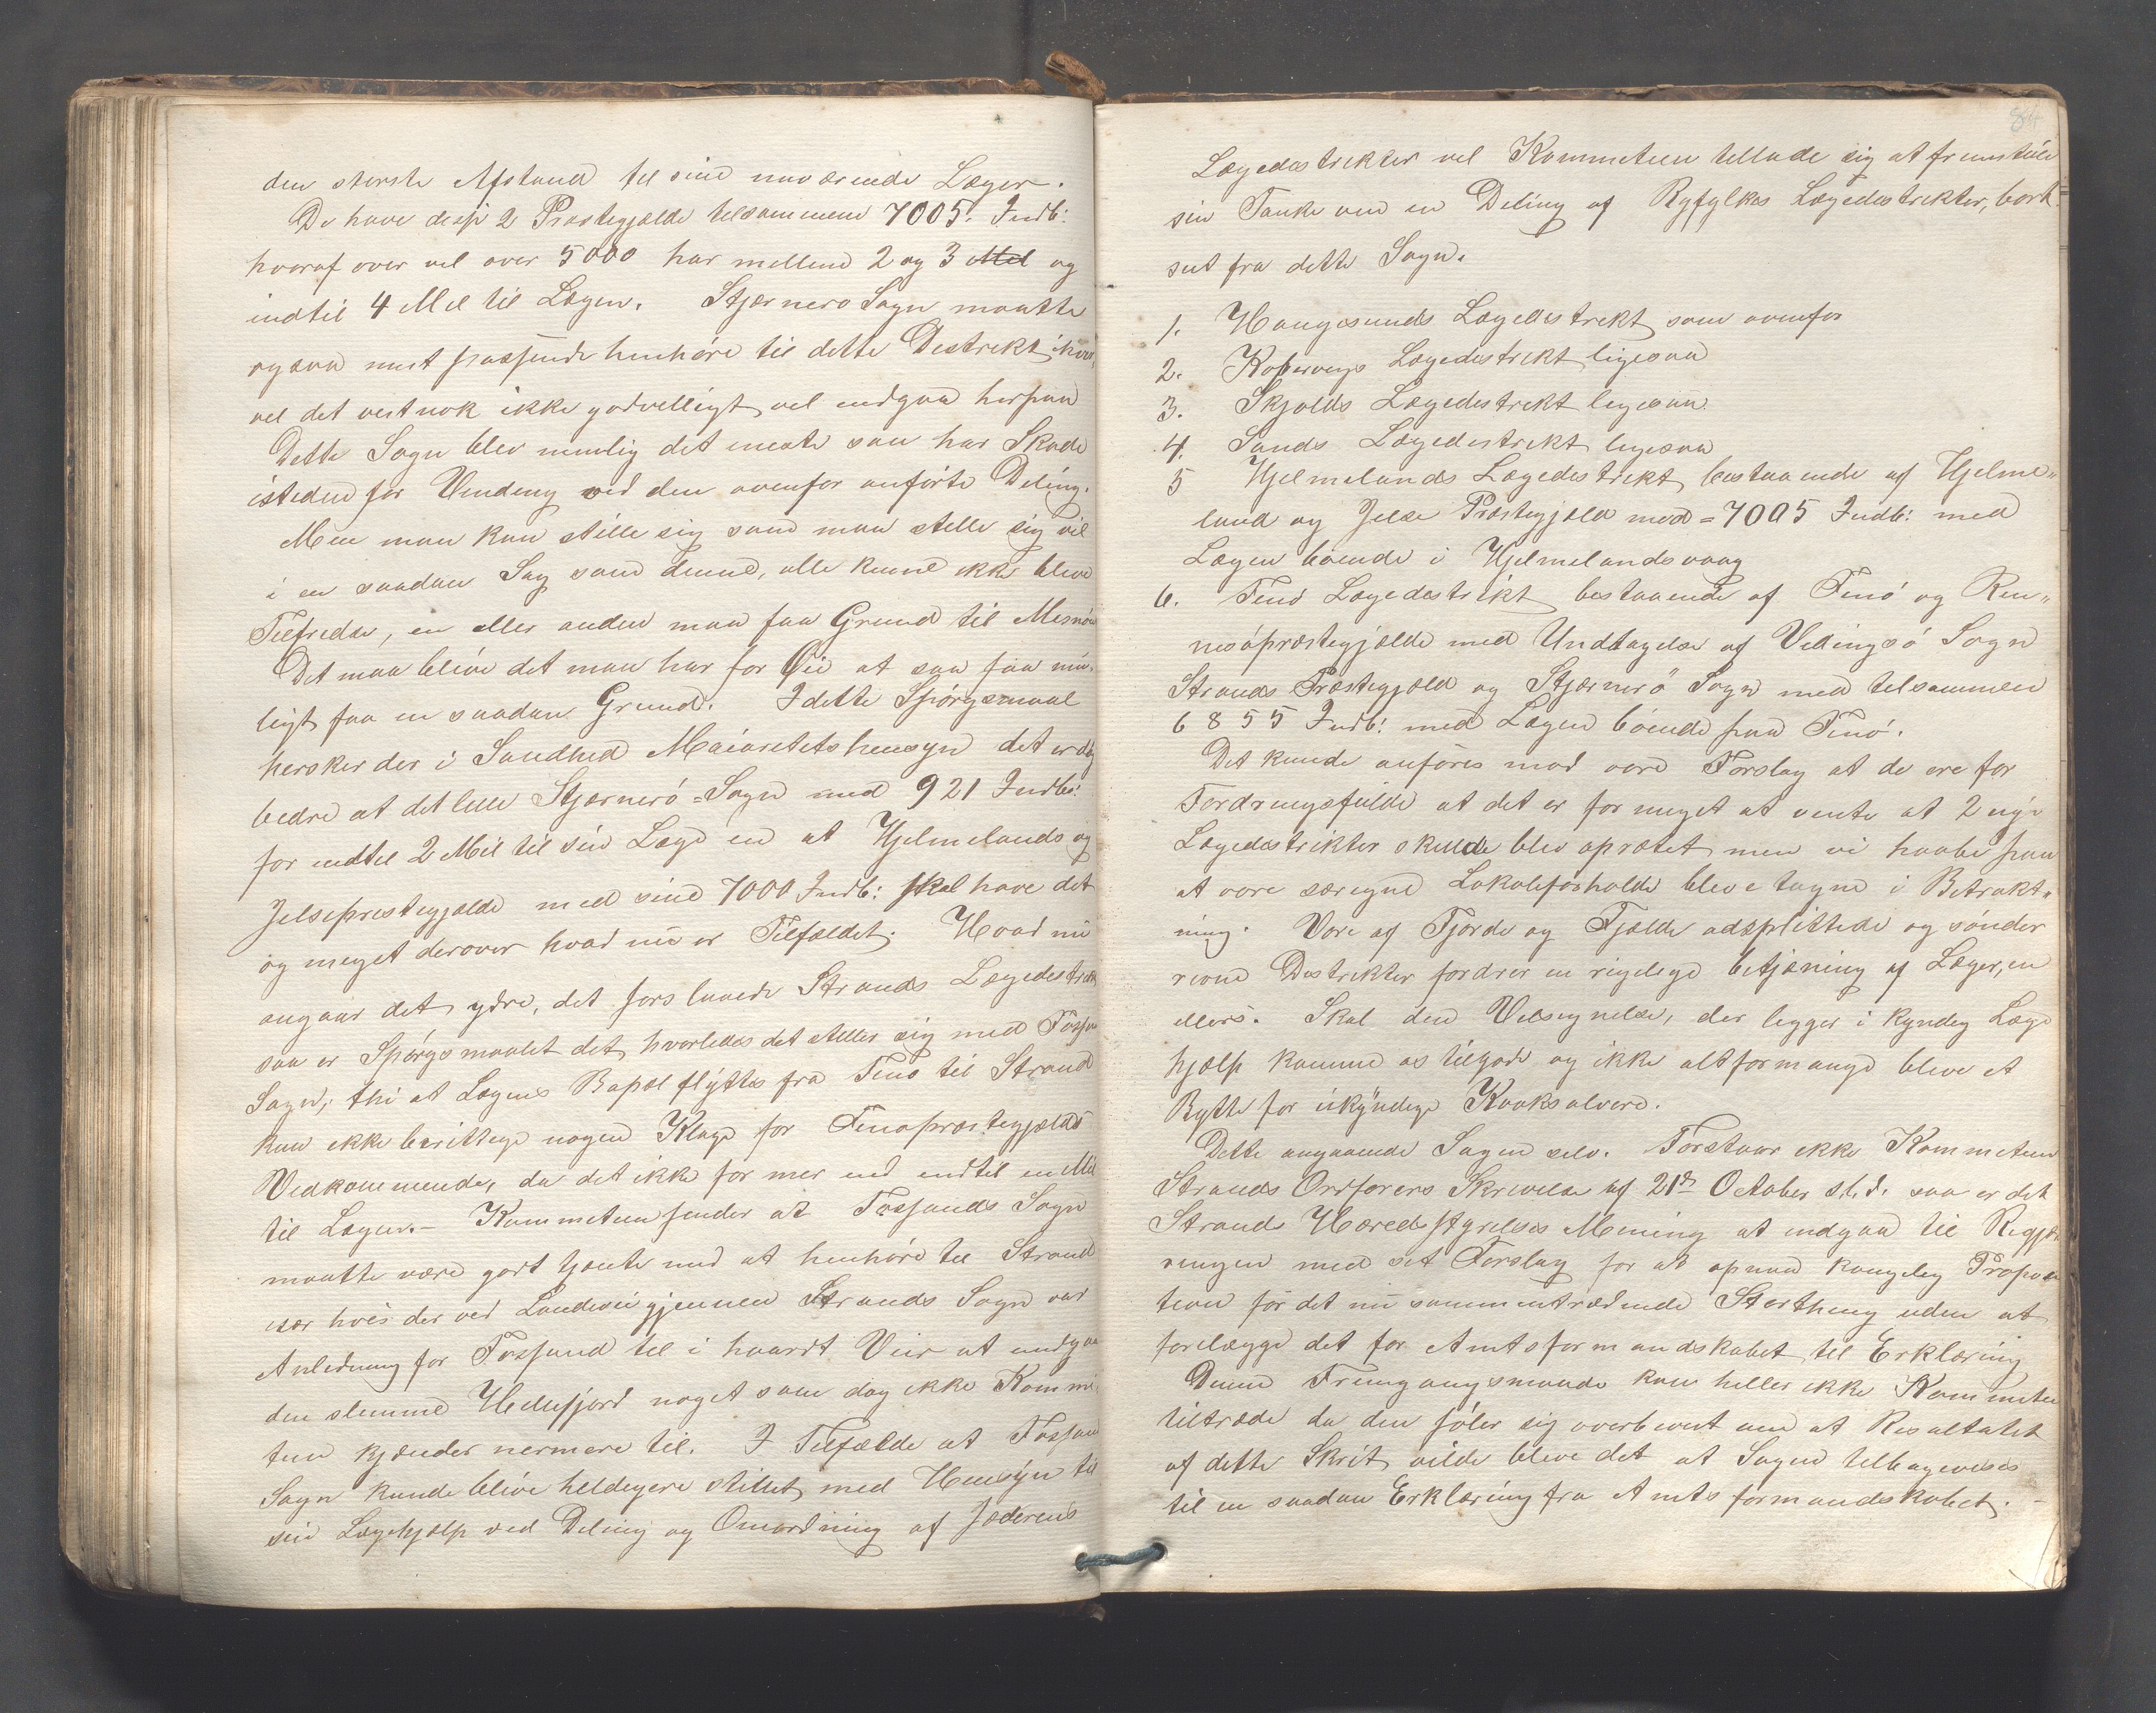 den største Afstand til sine nuværende Læger.
De have disse 2 Præstegjælde tilsammen 7005. Indb:
hvoraf over vel over 5000 har mellem 2 og 3 Mil og
indtil 4 Mil til Lægen. Stjernerø Sogn maatte
ogsaa mest passende henhøre til dette Destrikt, ihvor
vel det vestnok ikke godvelligt vel indgaa herpaa
Dette Sogn blev nemlig det eneste som har Skade
isteden for Vinding ved den ovenfor anførte Deling.
Men man kan stille sig som man stelle sig vil
i en saadan Sag som denne, alle kunne ikke bleve
Tilfredse, en eller anden maa faa Grund til Misnøie
Det maa blive det man har for Øie at saa faa mu-
ligt faa en saadan Grund. I dette Spørgsmaal
hersker der i Sandhed Maioretetshensyn det er dog
bedre at det lille Stjernerø=Sogn med 921 Indb:
for indtel 2 Mil til sin Læge en at Hjelmelands og
Jelsepræstegjælde med sine 7000 Indb: skal have det
og meget derover hvad nu er Tilfældet. Hvad nu
angaar det ydre, det forslaaede Strands Lægedestrikt
saa er Spørgsmaalet det, hvorledes det steller sig med Fossan
Sogn, thi at Lægens Bopæl flyttes fra Finø til Strand
kan ikke berettige nogen Klage for Finøpræstegjælds
Vedkommende, da det ikke for mer end indtil en Mil
til Lægen.- Kommeteen finder at Fossands Sogn
maatte være godt tjente med at henhøre til Strand
især hvis der ved Landvei gjennem Strands Sogn var
Anledning for Fossand tel i haardt Veir at undgaa
den slemme Hidlefjord noget som dog ikke Kommi
teen kjender nermere til. I Tilfælde at Fossan
Sogn kunde blive heldegere stillet med Hensyn til
sin Lægehjælp ved Deling og Omordning af Jæderens
84
Lægedestrekter vel Kommeteen tellade sig at fremstille
sin Tanke om en Deling af Ryfylkes Lægedestrekter, bort
set fra dette Sogn.
1. Haugesunds Lægedestrekt som ovenfor
2. Kopervegs Lægedestrekt ligesaa
3. Skjolds Lægedestrekt legesaa
4. Sands Lægedestrekt legesaa
5 Hjelmelands Lægedestrekt, bestaaende af Hjelme-
land og Jelse Præstegjæld med = 7005 Indb: med
Lægen boende i Hjelmelandsvaag
6. Finø Lægedestrikt bestaaende af Finø og Ren-
nesøpræstegjælde med Undtagelse af Vedingsø Sogn
Strands Præstegjæld og Stjernerø Sogn med telsammen
6855 Indb: med Lægen boende paa Finø.
Det kunde anføres mod vore Forslag at de ere for
Fordringsfulde at det er for meget at vente at 2 nye
Lægedestrikter skulde blev oprætet men vi haabe paa
at vore særegne Lokaleforholde bleve tagne i Betrakt-
ning. Vore af Fjorde og Fjælde adsplittede og sønder
revne Destrikter fordrer en regelige betjæning af Læger, en
ellers. Skal den Velsignelse, der legger i kyndeg Læge
hjælp komme os tilgode og ikke altformange bleve et
Bytte for ukyndege Kvaksalvere.
Dette angaaende Sagen selv. Forstaar ikke Kommeteen
Strands Ordførers Skrivelse af 21de October s.l.d. saa er det
Strands Heredsstyrelses Mening at indgaa til Regje
ringen med set Forslag for at opnaa kongeleg Propose
tion for det nu sammentrædende Storthing uden at
forelægge det for Amtsformandskabet til Erklæring
Denne Fremgangsmaade kan heller ikke Kommeteen
tiltræde da den føler sig overbevist om at Resultatet
af dette Skrit vilde bleve det at Sagen telbageveses
til en saadan Erklæring fra Amtsformandskabet.-